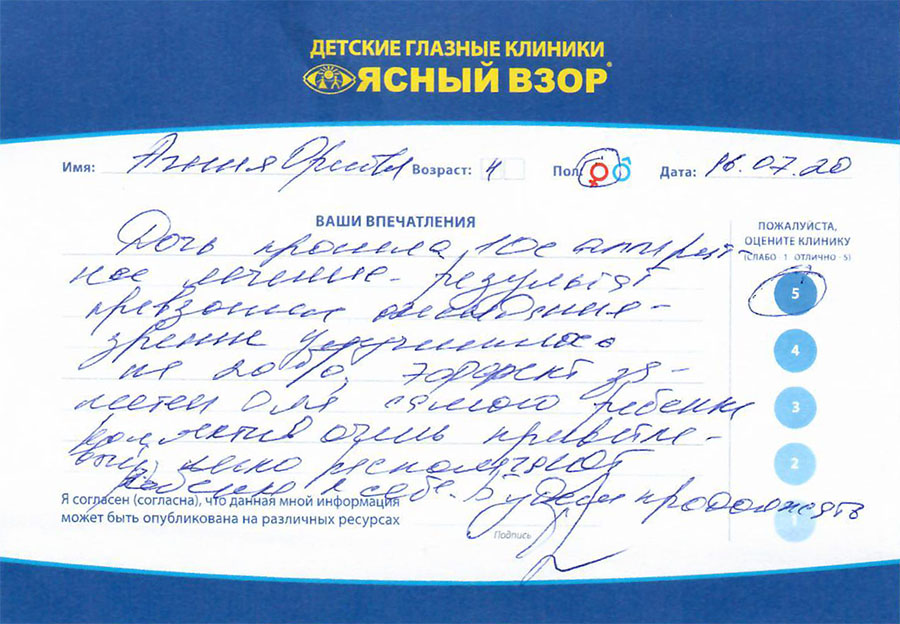 ДЕТСКИЕ ГЛАЗНЫЕ КЛИНИКИ
ЯСНЫЙ ВЗОР®
Имя: Возраст: 4 Пол: Дата: 16.07.20
ВАШИ ВПЕЧАТЛЕНИЯ
ПОЖАЛУЙСТА,
ОЦЕНИТЕ КЛИНИКУ
(СЛАБО - 1 ОТЛИЧНО - 5)
Дочь прошла 10е аппарат-
ное лечение - результат
превзошел ожидания -
зрение улучшилось
на 20%, эффект за-
метен для самого ребенка
коллектив очень приветли-
вый, легко располагают
ребенка к себе. Будем продолжать
5
4
3
2
1
Я согласен (согласна), что данная мной информация
может быть опубликована на различных ресурсах
Подпись